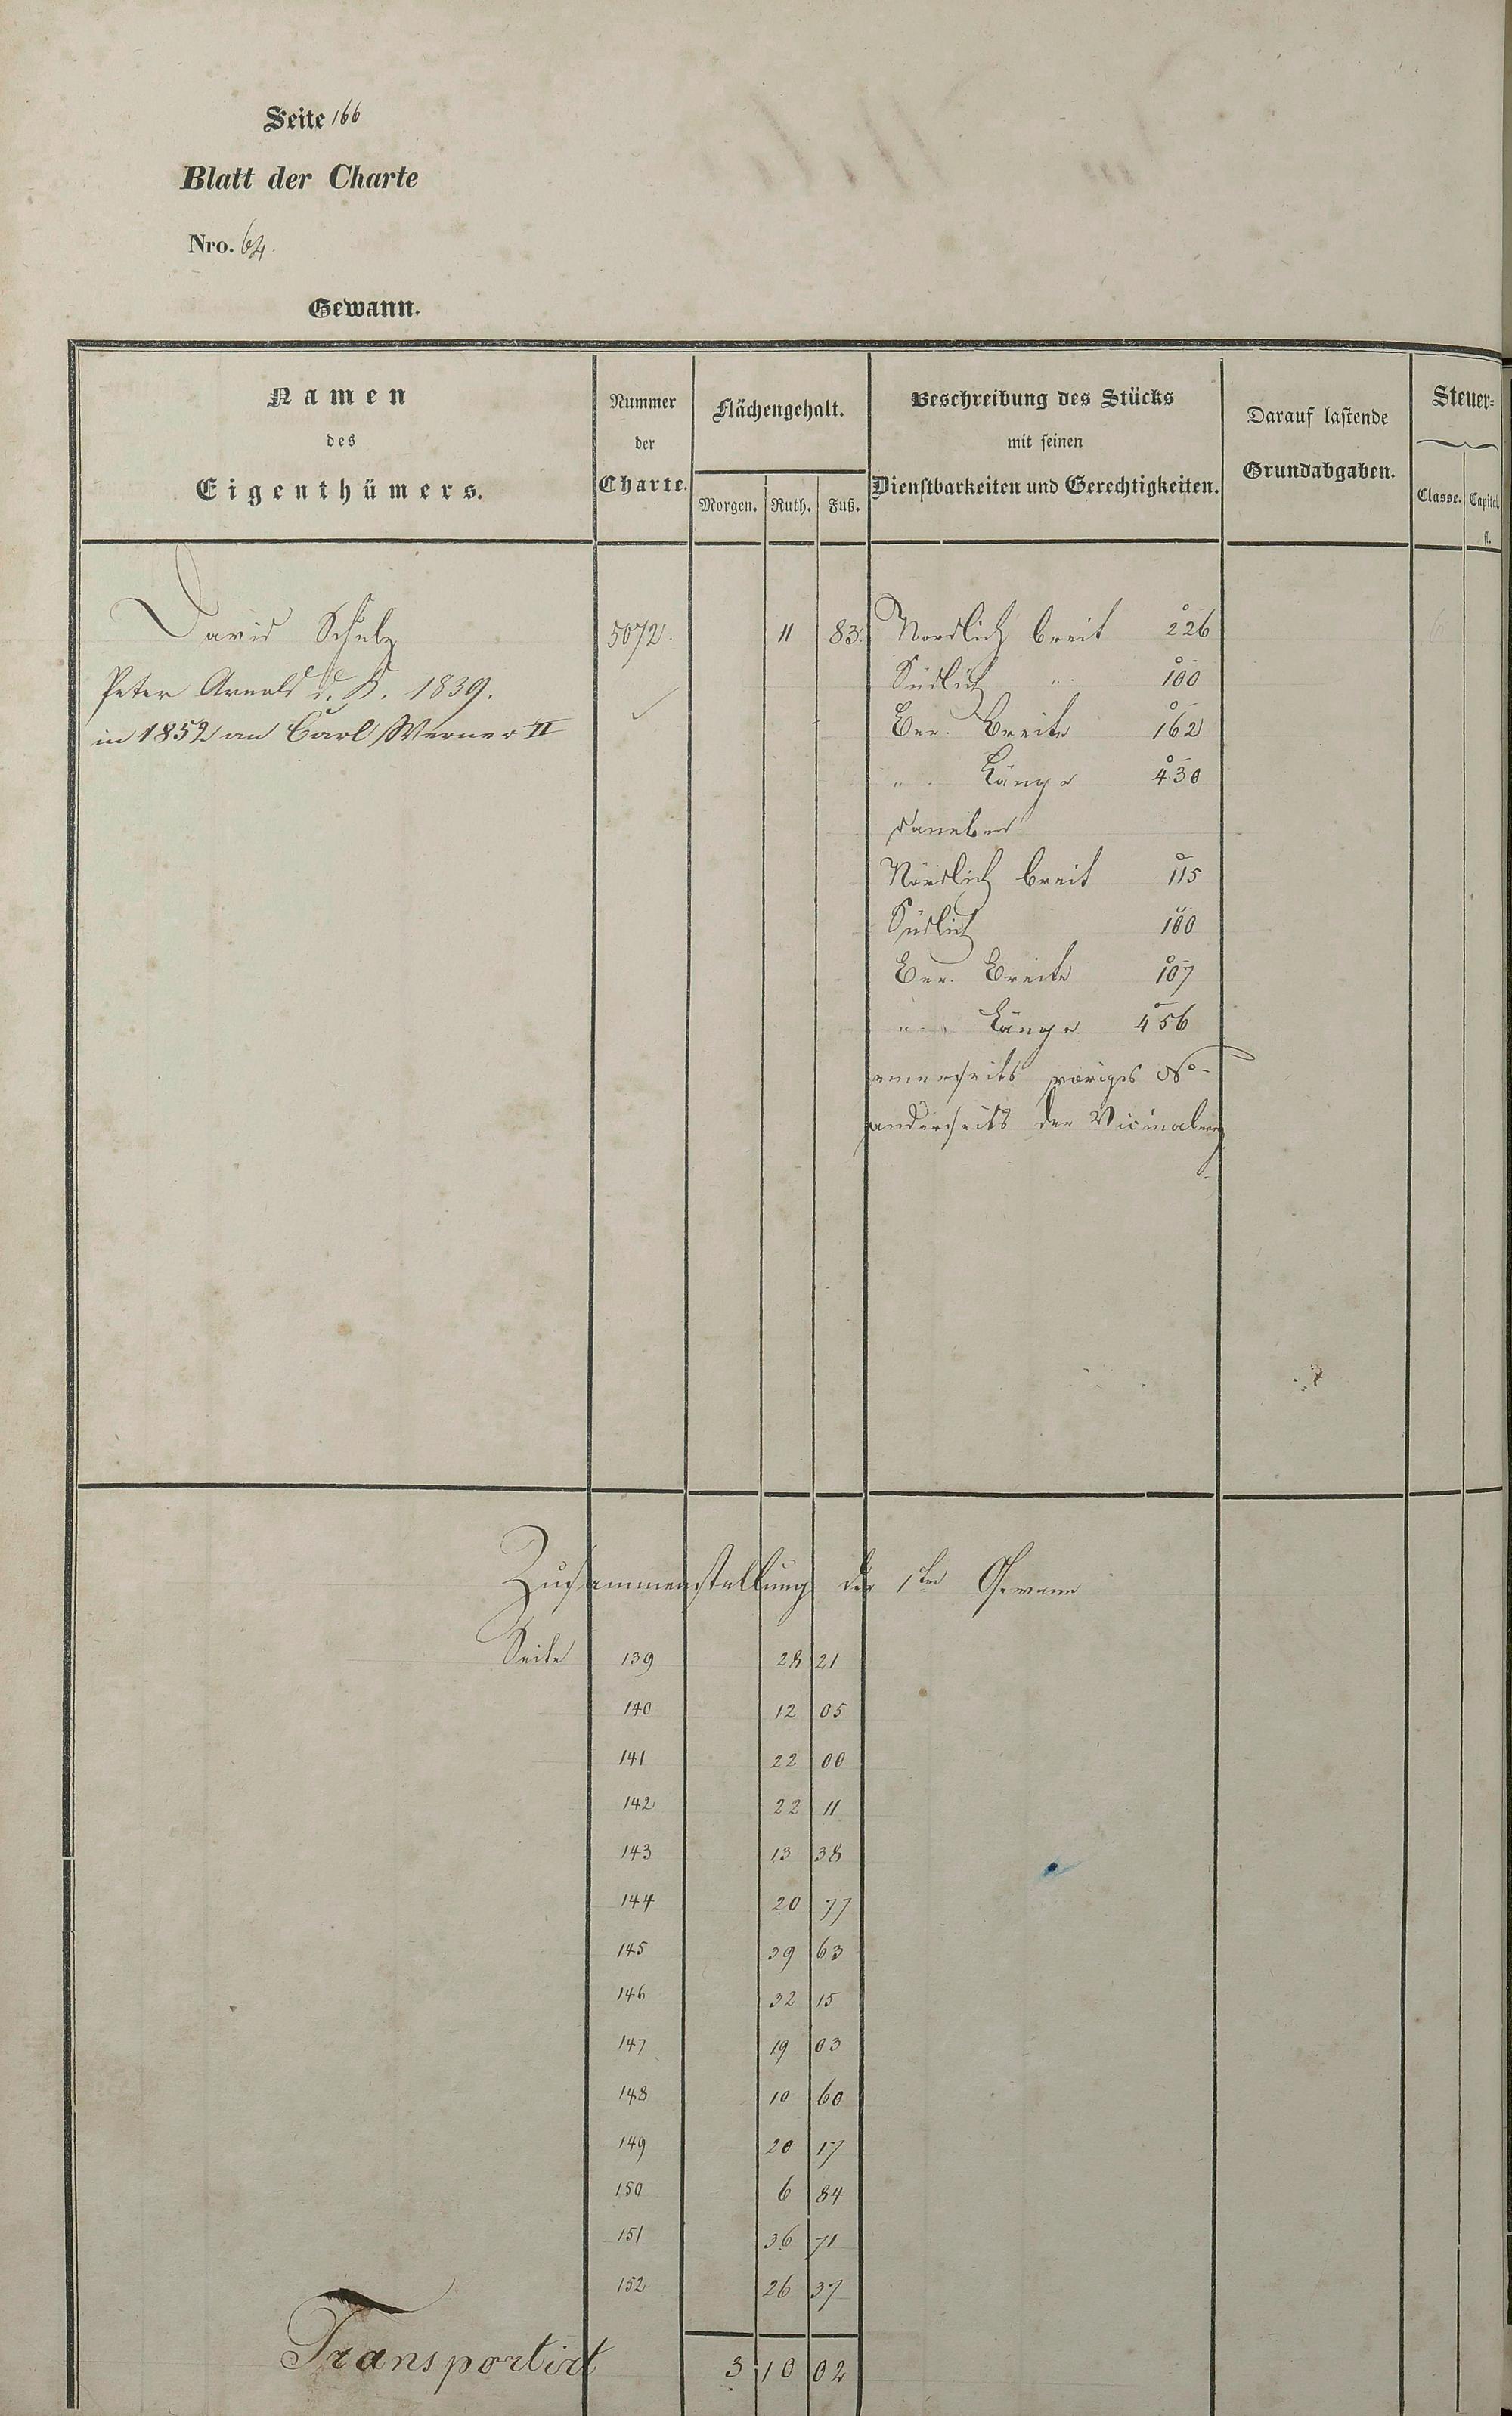 Seite 166
Blatt der Charte
Nro. 64.
Gewann.
Namen
des
Eigenthümers.
Nummer
der
Charte.
Flächengehalt.
Morgen. Ruth. Fuß.
Beschreibung des Stücks
mit seinen
Dienstbarkeiten und Gerechtigkeiten.
Darauf lastende
Grundabgaben.
Steuer-
Classe. Capital
fl.
David Schulz 5072. 11 83. Nordlich breit 226
Peter Arnold 1839. Südlich " 100
in 1852 an Carl Werner II Ber. Breite 162
" Länge 430
daneben
Nördlich breit 115
Südlich 100
Ber. Breite 107
" Länge 456
einerseits voriges No
anderseits der Vicinalweg
Zusammenstellung der 1ten Gewann
Seite 139 28 21
140 12 05
141 22 00
142 22 11
143 13 38
144 20 77
145 39 63
146 32 15
147 19 03
148 10 60
149 20 17
150 6 84
151 36 71
152 26 37
Transportirt 3 10 02